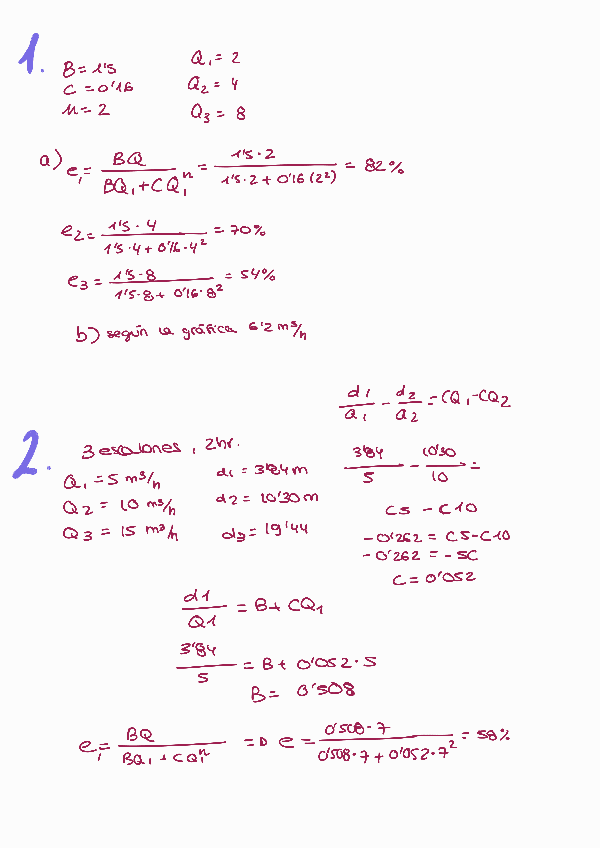 1.
B = 1'5
C = 0'16
n = 2
Q₁ = 2
Q₂ = 4
Q₃ = 8
a) e₁ = BQ / BQ₁ + CQ₁ⁿ = 1'5 · 2 / 1'5 · 2 + 0'16 (2²) = 82%
e₂ = 1'5 · 4 / 1'5 · 4 + 0'16 · 4² = 70%
e₃ = 1'5 · 8 / 1'5 · 8 + 0'16 · 8² = 54%
b) según la gráfica 6'2 m³/h
2.
3 escalones, 2hr.
Q₁ = 5 m³/h
Q₂ = 10 m³/h
Q₃ = 15 m³/h
d₁ = 3'84 m
d₂ = 10'30 m
d₃ = 19'44
d1 / Q1 - d2 / Q2 = CQ₁ - CQ2
3'84 / 5 - 10'30 / 10 =
C5 - C10
- 0'262 = C5 - C10
- 0'262 = - 5C
C = 0'052
d1 / Q1 = B + CQ1
3'84 / 5 = B + 0'052 · 5
B = 0'508
e₁ = BQ / BQ₁ + CQ₁ⁿ => e = 0'508 · 7 / 0'508 · 7 + 0'052 · 7² = 58%